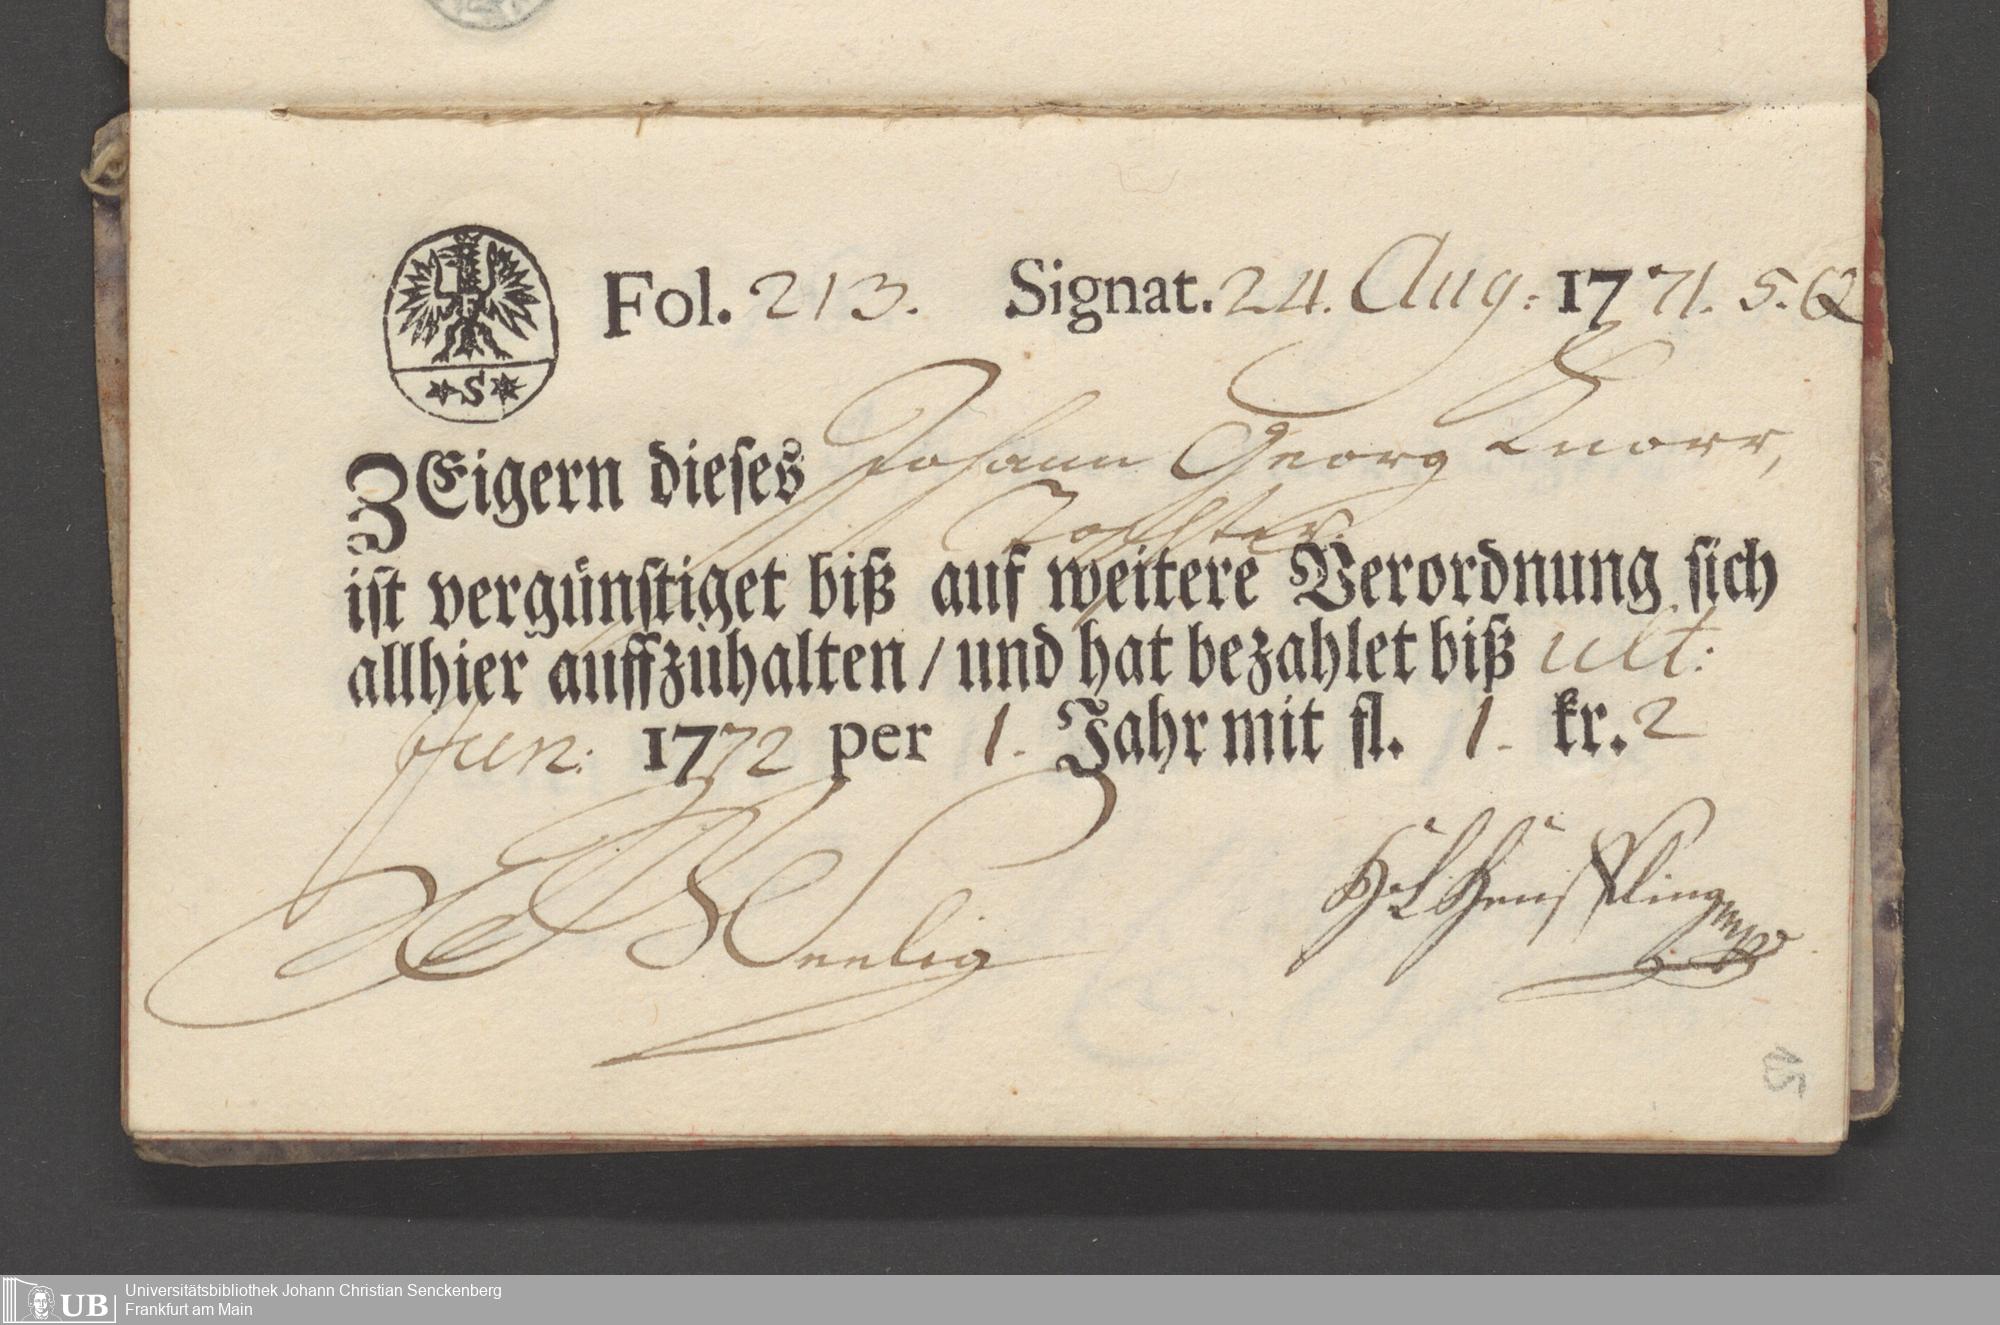 Fol. 213. Signat. 24. Aug: 1771. 5. Q
S
ZEigern dieses Johann Georg Knorr,
Tochter
ist vergünstiget biß auf weitere Verordnung sich
allhier auffzuhalten / und hat bezahlet biß ult:
Jun: 1772 per 1. Jahr mit fl. 1. kr. 2
15
UB
Universitätsbibliothek Johann Christian Senckenberg
Frankfurt am Main